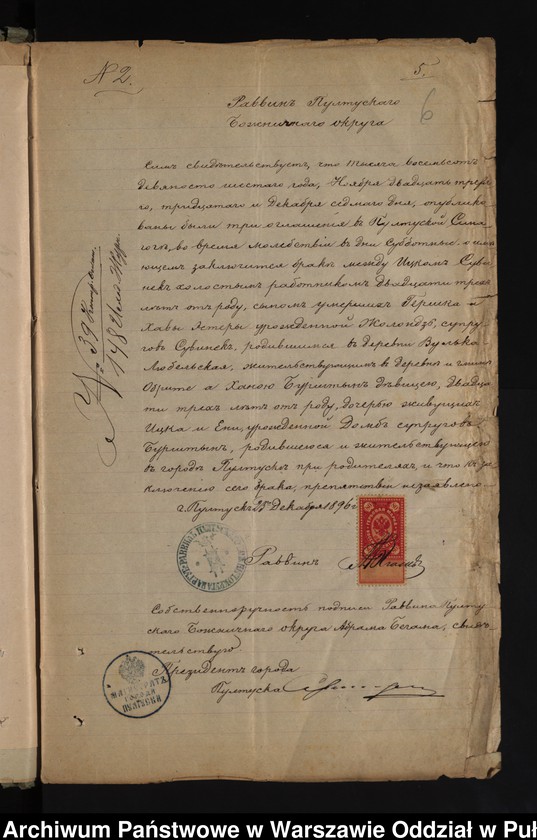 № 2.
5.
6
Раввинъ Пултускаго
Божничнаго округа
Симъ свидѣтельствуетъ, что тысяча восемьсотъ
девяносто шестаго года, Ноября двадцать третья-
го, тридцатаго и Декабря седмаго дня, опублико
ваны были три оглашенія въ Пултуской Сина
гогѣ, во время молебствій въ дни Субботные о
ющемъ заключится бракѣ между Ицкомъ Суви
некъ холостымъ работникомъ двадцати трехъ
лѣтъ отъ роду, сыномъ умершихъ Гершка и
Хавы Эстеры урожденной супру
говъ Сувинекъ, родившимся въ деревни Вулька
Любельская, жительствующимъ въ деревни и гминѣ
Обрите а Ханою Бурштынъ дѣвицею, двадца
ти трехъ лѣтъ отъ роду, дочерью живущихъ
Ицка и Ени, урожденной Домбъ супруговъ
Бурштынъ, родившеюся и жительствующею
въ городѣ Пултускѣ при родителяхъ, и что къ за
ключенію сего брака, препятствій незаявлено
г. Пултускъ 25 Декабря 1896 г.
Раввинъ
Собственноручность подписи Раввина Пулту
скаго Божничнаго округа Абрама свидѣ
тельствую
Президентъ города
Пултуска
МАГИСТРАТЪ
ГОРОДА
ПУЛТУСКА
Archiwum Państwowe w Warszawie Oddział w Puł